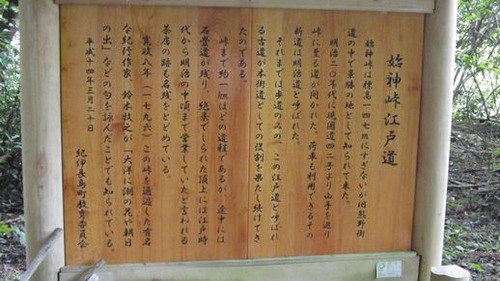 始神峠江戸道
始神峠は標高一四七mにすぎないが旧熊野街
道の中で景勝の地として知られて来た。
明治二〇年代に現国道四二号より山手を通り
峠に至る道が開かれた。荷車も利用できるその
新道は明治道と呼ばれた。
それまでは歩道のみの、この江戸道と呼ばれ
る古道が本街道としての役割を果たし続けてき
たのである。
峠まで約1kmほどの道程であるが、途中には
石畳道が残り、絶景でしられた頂上には江戸時
代から明治の中頃まで営業していたと言われる
茶店の跡も名残をとどめている。
寛政八年(一七九六)この峠を通過した有名
な紀行作家、鈴木牧之が「大洋に潮の花や朝日
の出」などの句を詠んだことでも知られている。
平成十四年三月二十日
紀伊長島町教育委員会